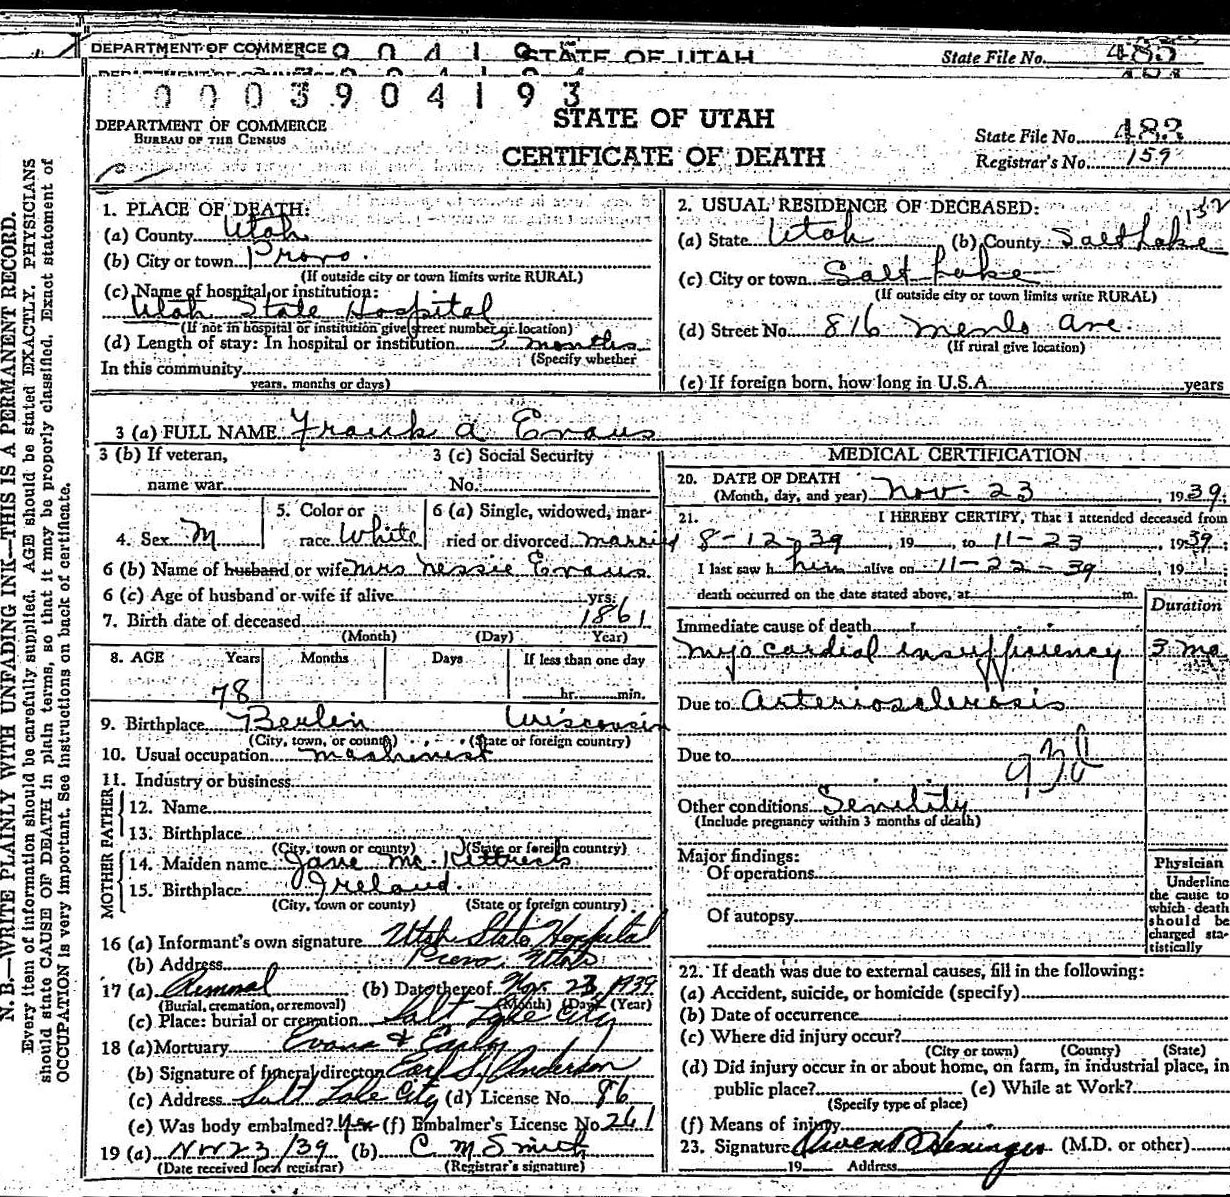 DEPARTMENT OF COMMERCE STATE OF UTAH State File No. 485
0003904193
DEPARTMENT OF COMMERCE
BUREAU OF THE CENSUS
STATE OF UTAH
CERTIFICATE OF DEATH
State File No. 483
Registrar's No. 159
N. B.—WRITE PLAINLY WITH UNFADING INK—THIS IS A PERMANENT RECORD.
Every item of information should be carefully supplied. AGE should be stated EXACTLY. PHYSICIANS
should state CAUSE OF DEATH in plain terms, so that it may be properly classified. Exact statement of
OCCUPATION is very important. See instructions on back of certificate.
1. PLACE OF DEATH:
(a) County Utah
(b) City or town Provo.
(If outside city or town limits write RURAL)
(c) Name of hospital or institution:
Utah State Hospital
(If not in hospital or institution give street number or location)
(d) Length of stay: In hospital or institution 3 months
(Specify whether
In this community
years, months or days)
2. USUAL RESIDENCE OF DECEASED:
(a) State Utah (b) County Salt Lake
(c) City or town Salt Lake
(If outside city or town limits write RURAL)
(d) Street No. 816 Menlo Ave.
(If rural give location)
(e) If foreign born, how long in U.S.A. years
3 (a) FULL NAME Frank A Evans
3 (b) If veteran,
name war
3 (c) Social Security
No.
4. Sex M
5. Color or
race White
6 (a) Single, widowed, mar-
ried or divorced married
6 (b) Name of husband or wife Mrs Nessie Evans
6 (c) Age of husband or wife if alive yrs.
7. Birth date of deceased 1861
(Month) (Day) Year)
8. AGE Years Months Days If less than one day
78 hr. min.
9. Birthplace Berlin Wisconsin
(City, town, or county) (State or foreign country)
10. Usual occupation machinist
11. Industry or business
FATHER
12. Name
13. Birthplace
(City, town or county) (State or foreign country)
MOTHER
14. Maiden name Jane Mc.
15. Birthplace Ireland.
(City, town or county) (State or foreign country)
16 (a) Informant's own signature Utah State Hospital
(b) Address Provo, Utah
17 (a) Removal (b) Date thereof Nov. 23 1939
(Burial, cremation, or removal) (Month) (Day) (Year)
(c) Place: burial or cremation Salt Lake City
18 (a) Mortuary Evans & Early
(b) Signature of funeral director Earl S. Anderson
(c) Address Salt Lake City (d) License No. 86
(e) Was body embalmed? Yes (f) Embalmer's License No 261
19 (a) Nov 23/39 (b) C. M. Smith
(Date received local registrar) (Registrar's signature)
MEDICAL CERTIFICATION
20. DATE OF DEATH
(Month, day, and year) Nov. 23, 1939
21. I HEREBY CERTIFY, That I attended deceased from
8-12-39, 19 , to 11-23, 1939.
I last saw h him alive on 11-22-39, 19
death occurred on the date stated above, at m.
Duration
Immediate cause of death
Myocardial insufficiency 3 mo
Due to Arteriosclerosis
Due to
93d
Other conditions Senility
(Include pregnancy within 3 months of death)
Major findings:
Of operations
Of autopsy
Physician
Underline
the cause to
which death
should be
charged sta-
tistically
22. If death was due to external causes, fill in the following:
(a) Accident, suicide, or homicide (specify)
(b) Date of occurrence
(c) Where did injury occur?
(City or town) (County) (State)
(d) Did injury occur in or about home, on farm, in industrial place, in
public place? (e) While at Work?
(Specify type of place)
(f) Means of injury
23. Signature Owen P. Heninger (M.D. or other)
19 Address